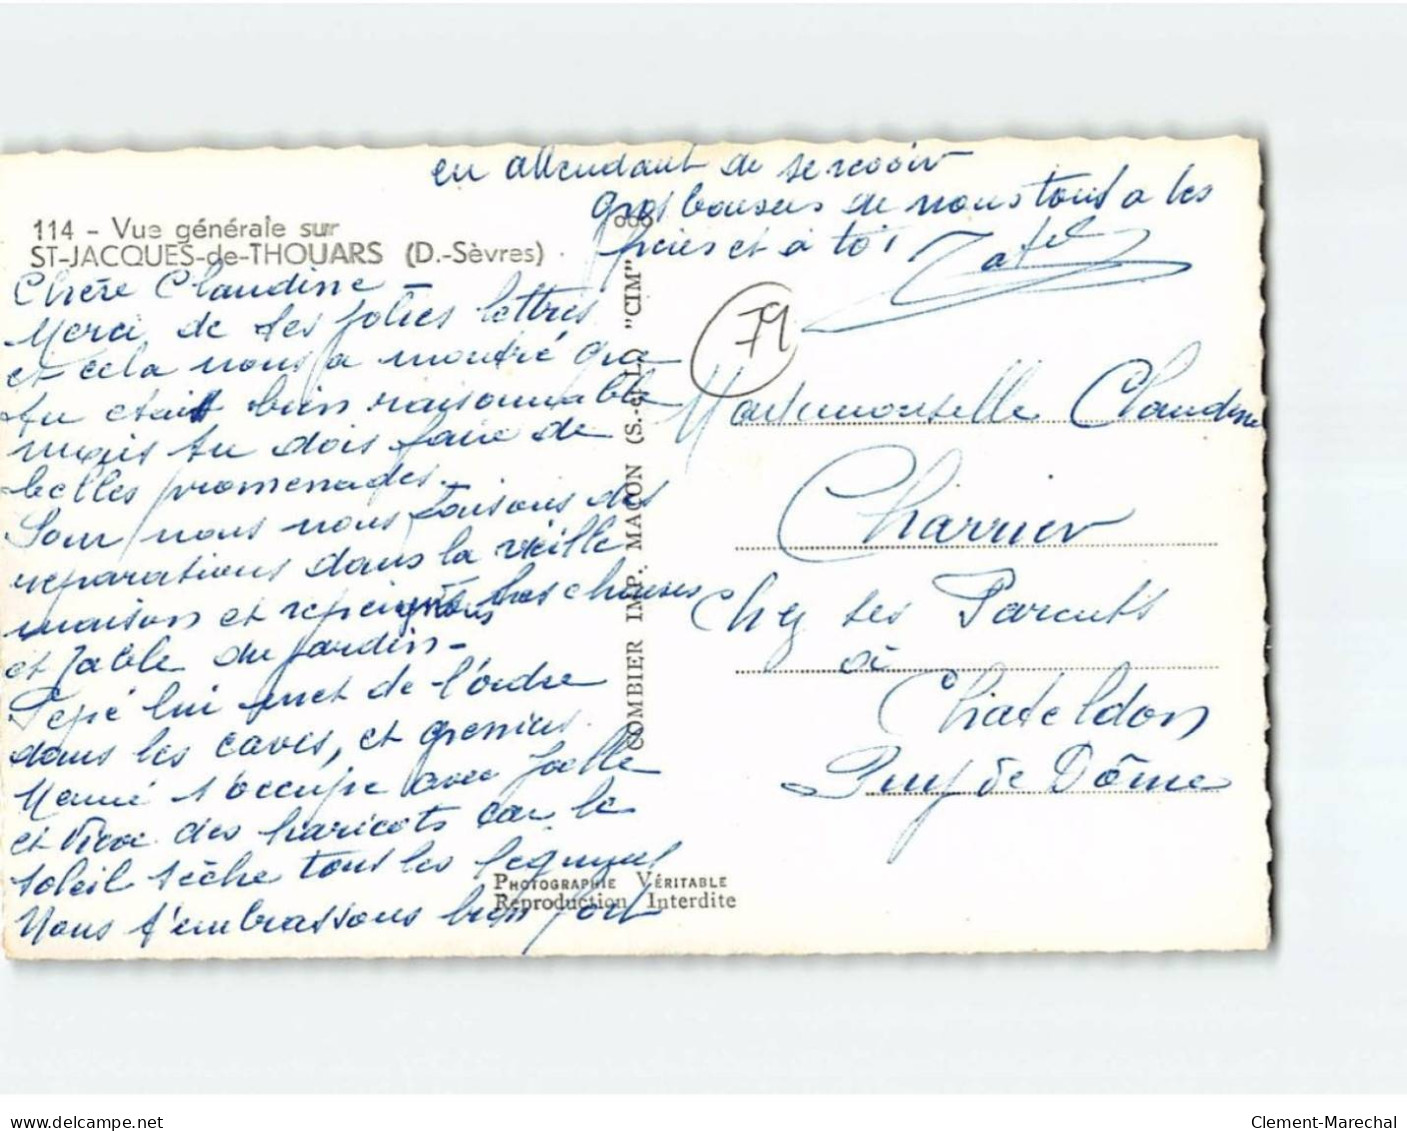 114 - Vue générale sur
ST-JACQUES-de-THOUARS (D.-Sèvres)
Chère Claudine -
Merci de tes jolies lettres
et cela nous a montré que
tu étais bien raisonnable
mais tu dois faire de
belles promenades.
Pour nous nous faisons des
réparations dans la vieille
maison et repeignons les chaises
et table du jardin -
Pépé lui met de l'ordre
dans les caves, et greniers.
Mémé s'occupe avec Joelle
et des haricots car le
soleil sèche tous les légumes
Nous t'embrassons bien fort
en attendant de se revoir
gros baisers de nous tous a tes
frères et à toi
COMBIER IMP. MACON (S.-et-L.) "CIM"
79
Mademoiselle Claudine
Charrier
Chez ses Parents
à
Chateldon
Puy de Dôme
PHOTOGRAPHIE VÉRITABLE
Reproduction Interdite
delcampe.net
Clement-Marechal